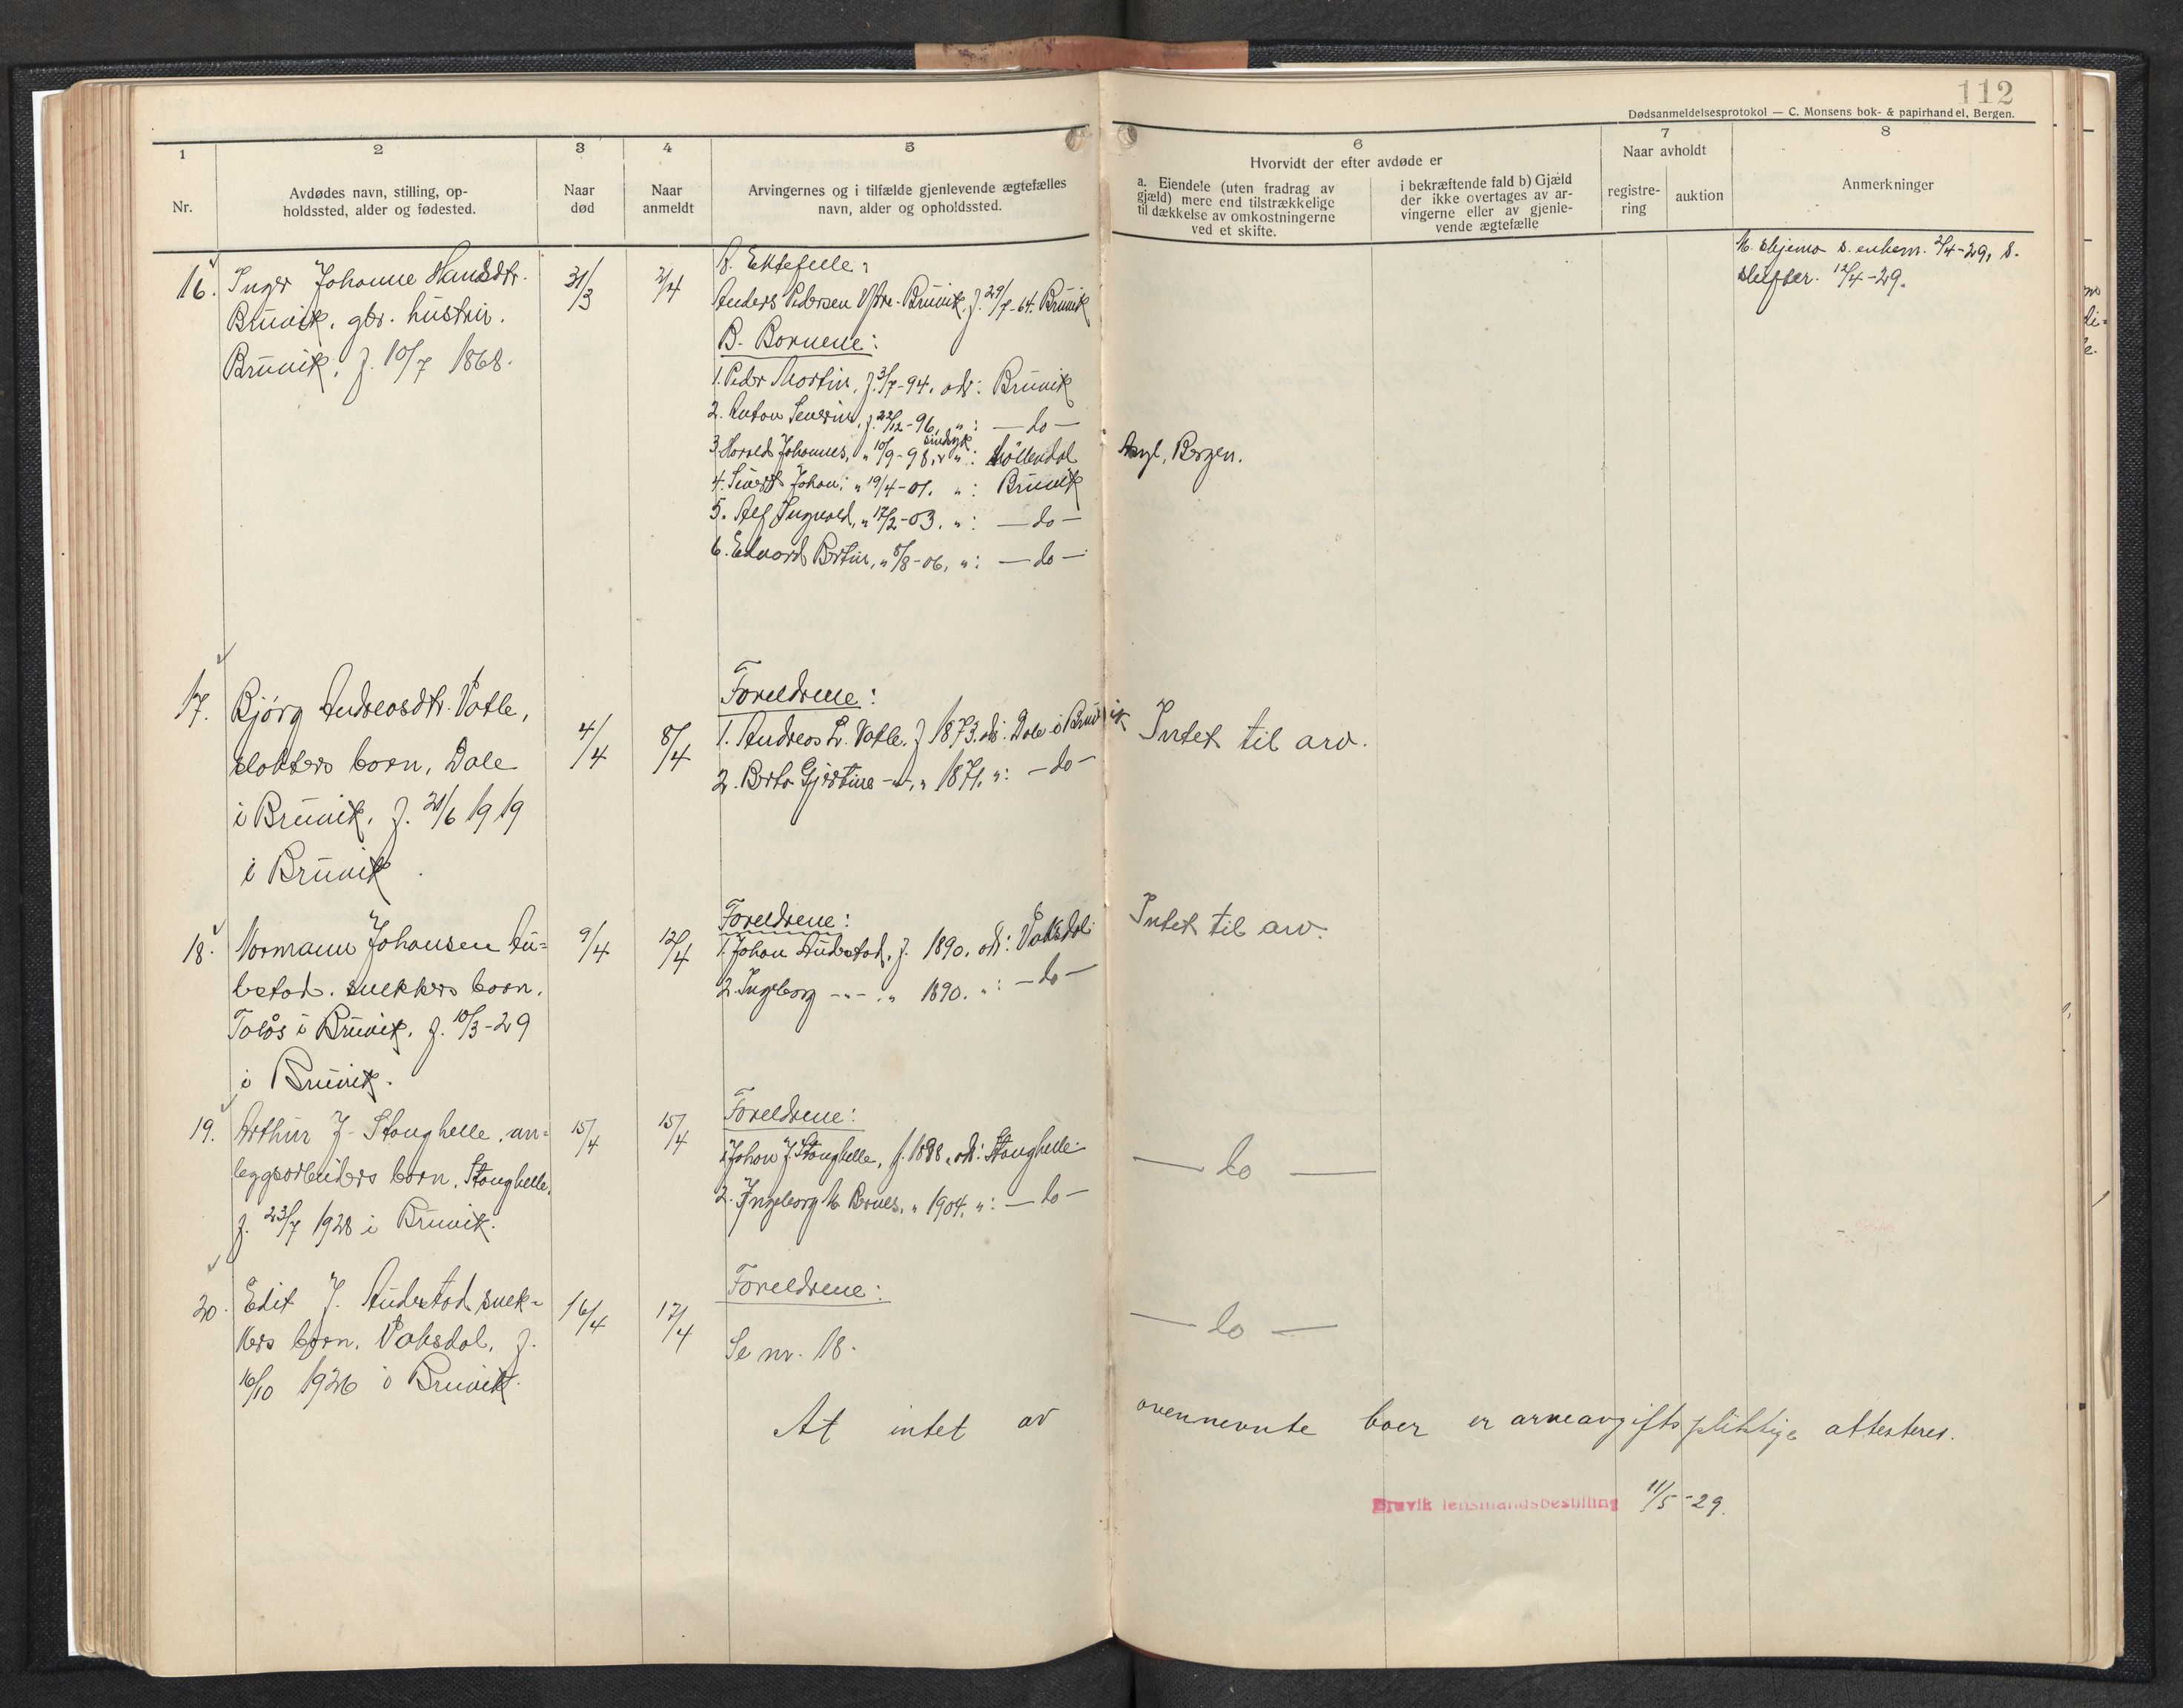 112
Dødsanmeldelsesprotokol — C. Monsens bok- & papirhandel, Bergen.
1
2
3
4
5
6
7
8
Nr.
Avdødes navn, stilling, op-
holdssted, alder og fødested.
Naar
død
Naar
anmeldt
Arvingernes og i tilfælde gjenlevende ægtefælles
navn, alder og opholdssted.
Hvorvidt der efter avdøde er
a. Eiendele (uten fradrag av
gjæld) mere end tilstrækkelige
til dækkelse av omkostningerne
ved et skifte.
i bekræftende fald b) Gjæld
der ikke overtages av ar-
vingerne eller av gjenle-
vende ægtefælle
Naar avholdt
registre-
ring
auktion
Anmerkninger
16.
Inger Johanne Hansdtr.
Bruvik, gbr. hustru.
Bruvik, f. 10/7 1868.
31/3
2/4
A. Ektefelle:
Anders Pedersen Bruvik, f. 29/7-64. Bruvik
B. Bornene:
1. Peder Martin, f. 3/7-94. adr: Bruvik
2. Anton Severin, f. 22/12-96, ": — do —
3. Harald Johannes, " 10/9-98, sindsyk ": Møllendal Asyl, Bergen.
4. Sivert Johan, " 19/4-01. ": Bruvik
5. Alf Ingvald, " 17/2-03. ": — do —
6. Edvard Bertin, " 5/8-06, ": — do —
skjema s. enkem. 2/4-29, s.
skifter. 12/4-29.
17.
Bjørg Andreasdtr. Vatle,
klokkers born, Dale
i Bruvik, f. 21/6 1919
i Bruvik
4/4
8/4
Foreldrene:
1. Andreas L. Vatle. f 1873. adr: Dale i Bruvik
2. Berta Gjertine — " —, " 1871, ": — do —
Intet til arv.
18.
Normann Johansen Au-
bstad. snekkers born.
Tolås i Bruvik, f. 10/3-29
i Bruvik.
9/4
12/4
Foreldrene:
1. Johan Audestad, f. 1890. adr: Vaksdal
2. Ingeborg — " — . " 1890. ": — do —
Intet til arv.
19.
Arthur J. Stanghelle, an-
leggsarbeiders born, Stanghelle,
f. 23/7 1928 i Bruvik.
15/4
15/4
Foreldrene:
1. Johan J. Stanghelle, f. 1888, adr: Stanghelle
2. Ingeborg " 1904. ": — do —
— do —
20.
Edit J. Audestad snek-
kers born, Vaksdal, f.
16/10 1926 i Bruvik.
16/4
17/4
Foreldrene:
Se nr. 18.
— do —
At intet av ovennevnte boer er arveavgiftspliktige attesteres.
Bruvik lensmandsbestilling 11/5-29.